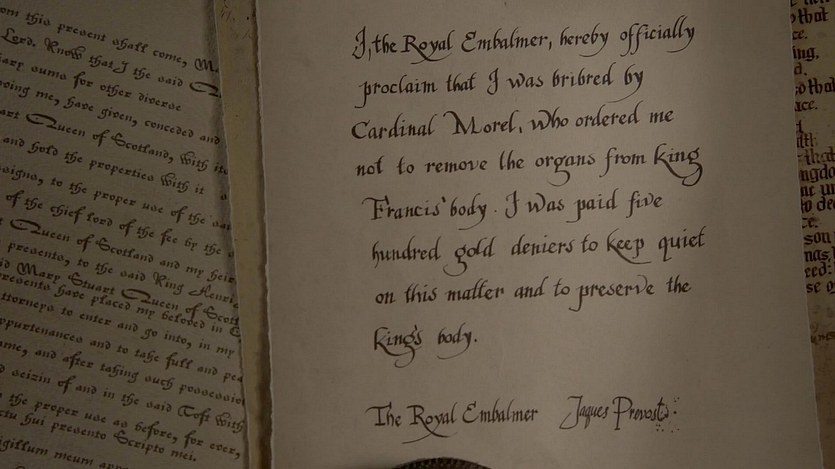 om this present shall come,
Lord. Know that I the said
sums for other diverse
me, have given, conceded and
Queen of Scotland, with
and hold the properties with it
to the proper use of the
of the chief lord of the fee by the
Queen of Scotland and my heir
presents, to the said King Henri
Mary Stuart Queen of Scotl
presents have placed my beloved in
attorneys to enter and go into, in my
appurtenances and to take full and
and after taking such possession
seizin of and in the said Toft with
the proper use as before, for ever,
hui presento Scripto mei.
sigillum meum
I, the Royal Embalmer, hereby officially
proclaim that I was bribred by
Cardinal Morel, who ordered me
not to remove the organs from king
Francis' body. I was paid five
hundred gold deniers to keep quiet
on this matter and to preserve the
king's body.
The Royal Embalmer Jaques Prevost